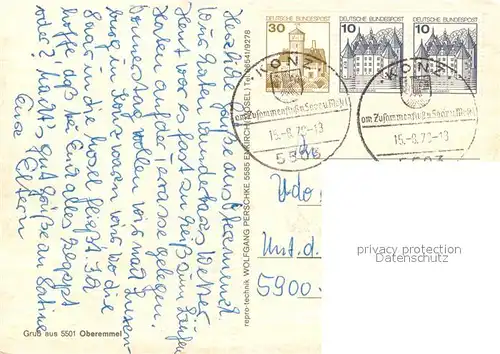 Herzliche Grüße aus Oberemmel.
Wir haben wunderbares Wetter
Heut war es fast zu heiß zum Laufen
auf die Terrasse gelegen.
Donnerstag wollen wir nach Luxem-
burg. In Konz waren wir wo die
Saar in die Mosel fließt. Ich
hoffe, daß bei Euch alles klappt
oder? Macht's gut Grüße an Sabine
Eure Eltern
Gruß aus 5501 Oberemmel
repro-technik WOLFGANG PERSCHKE, 5585 ENKIRCH (MOSEL) Tel. 06541/9278
DEUTSCHE BUNDESPOST
30
DEUTSCHE BUNDESPOST
10
DEUTSCHE BUNDESPOST
10
KONZ
am Zusammenfluß v. Saar u. Mosel
15.-8.78-13
5503
KONZ
am Zusammenfluß v. Saar u. Mosel
15.-8.78-13
5503
Udo
Unt. d.
5900
privacy protection
Datenschutz